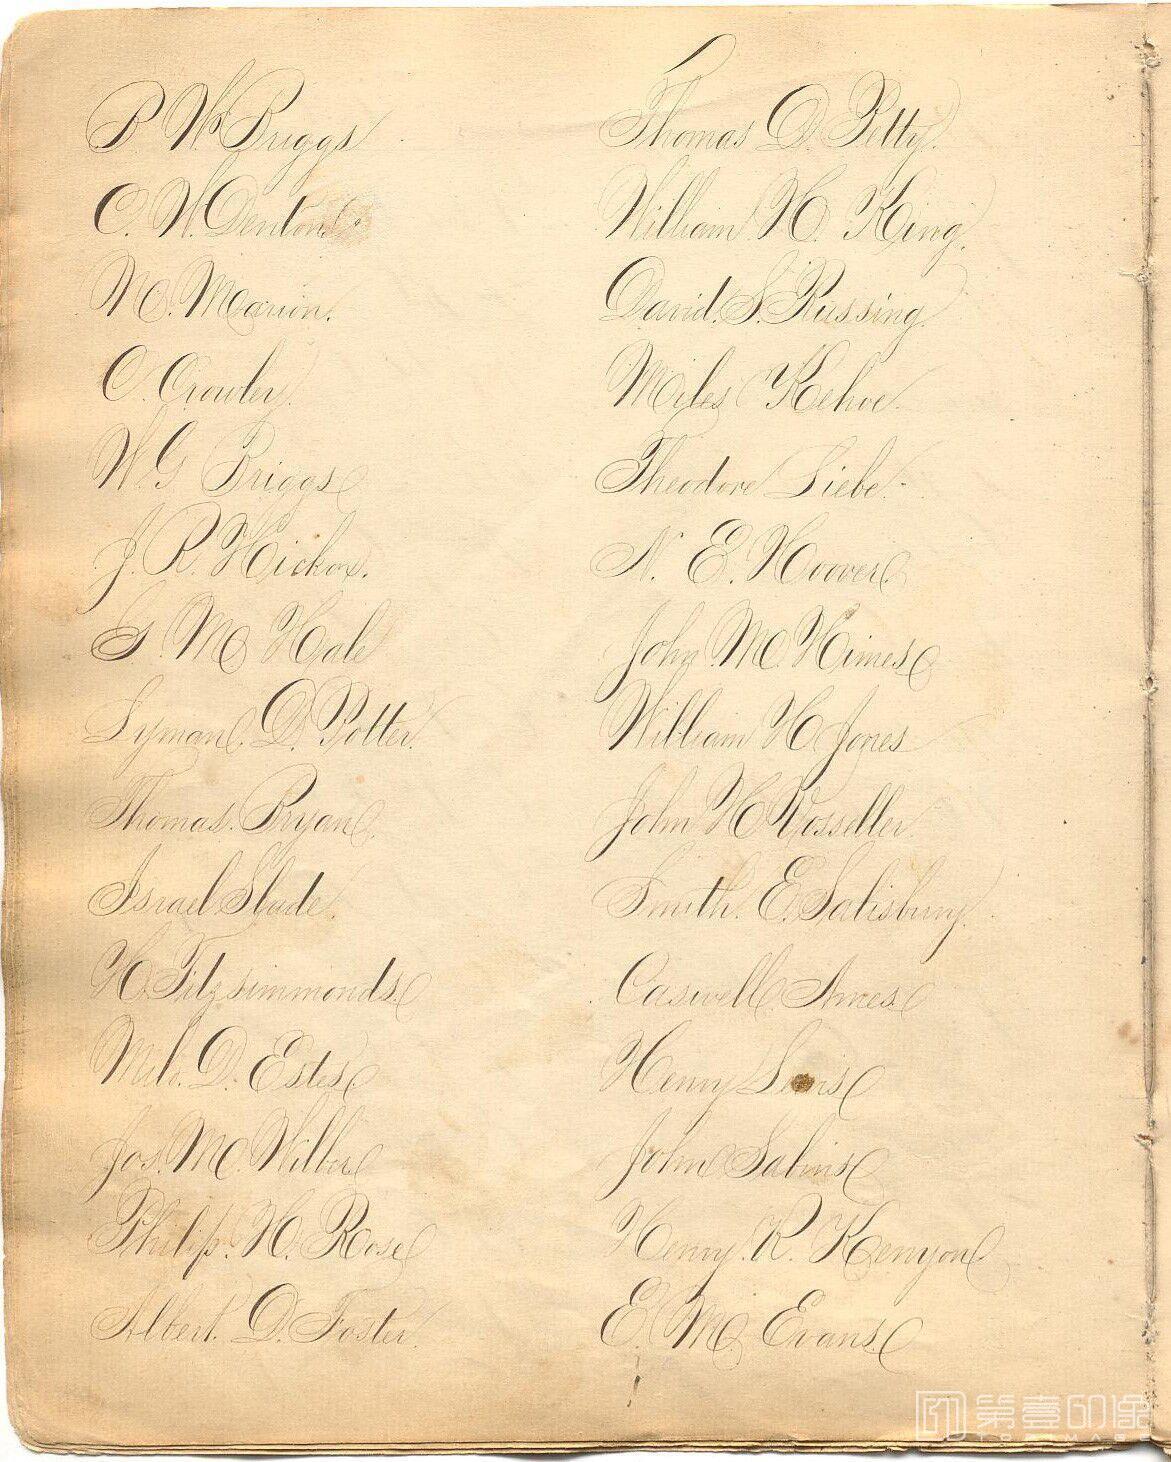 B W Briggs
C. W. Denton.
M. Marion.
C. Crowley.
W. G Briggs
J. R. Hickox.
G. M Hale
Lyman. D. Potter.
Thomas. Bryan.
Israel Slade.
H. Fitzsimmonds.
Milo. D. Estes
Jos. M. Wilber
Philip. H. Rose
Albert. D. Foster.
Thomas D. Petty.
William H. King.
David. S. Russing.
Miles Kehoe.
Theodore Liebe.
N. E. Hoover
John M. Himes
William H Jones
John H Rosseller.
Smith. E. Salisbury.
Caswell. Ames.
Henry
John Sabins
Henry. R. Kenyon
E. M. Evans.
第壹印像
TOPIMAGE